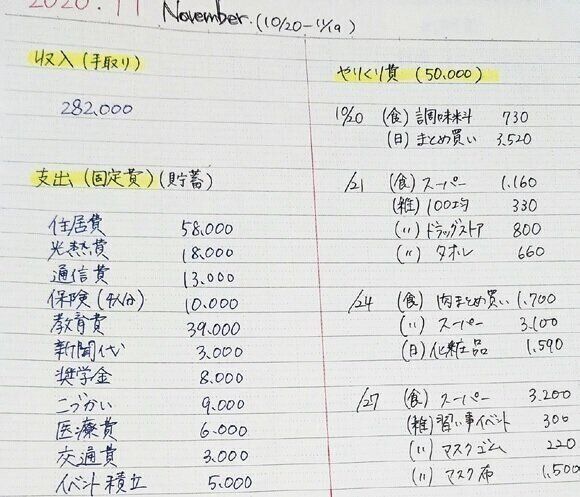 2020.11
November. (10/20-11/19)
収入 (手取り)
282,000
支出 (固定費)(貯蓄)
住居費 58,000
光熱費 18,000
通信費 13,000
保険 (4人分) 10,000
教育費 39,000
新聞代 3,000
奨学金 8,000
こづかい 9,000
医療費 6,000
交通費 3,000
イベント積立 5,000
やりくり費 (50,000)
10/20 (食) 調味料 730
(日) まとめ買い 3,520
/21 (食) スーパー 1,160
(雑) 100均 330
(〃) ドラッグストア 800
(〃) タオル 660
/24 (食) 肉まとめ買い 1,700
(〃) スーパー 3,100
(日) 化粧品 1,590
/27 (食) スーパー 3,200
(雑) 習い事イベント 300
(〃) マスクゴム 220
(〃) マスク布 1,500